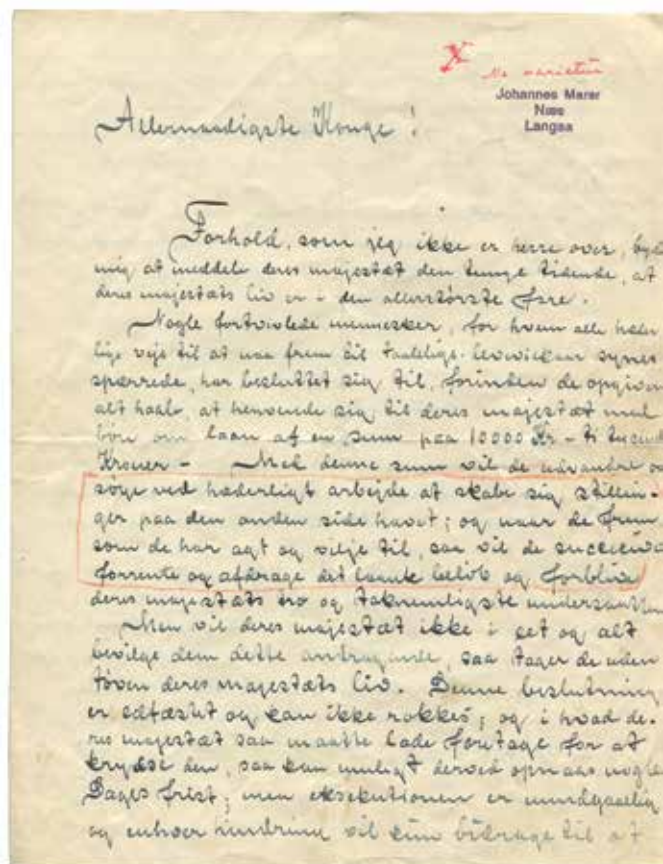 Ne varietur
Johannes Marer
Næs
Langaa
Allernaadigste Konge!
Forhold, som jeg ikke er herre over, byd
mig at meddele deres majestæt den tunge tidende, at
deres majestæts liv er i den allerstørste fare.
Nogle fortvivlede mennesker, for hvem alle hæder
lige veje til at naa frem til taalelige levevilkaar synes
spærrede, har besluttet sig til, forinden de opgiver
alt haab, at henvende sig til deres majestæt med
bøn om laan af en sum paa 10000 Kr – ti tusend
Kroner – Med denne sum vil de udvandre og
søge ved hæderligt arbejde at skabe sig stillin-
ger paa den anden side havet; og naar de frem
som de har agt og vilje til, saa vil de successive
forrente og afdrage det laante beløb og forblive
deres majestæts tro og taknemligste undersaatter
Men vil deres majestæt ikke i eet og alt
bevilge dem dette andragende, saa tager de uden
tøven deres majestæts liv. Denne beslutning
er edfæstet og kan ikke rokkes; og i hvad de-
res majestæt saa maatte lade foretage for at
krydse den, saa kan muligt derved opnaas nogle
Dages frist; men eksekutionen er uundgaaelig
og enhver hindring vil kun bidrage til at